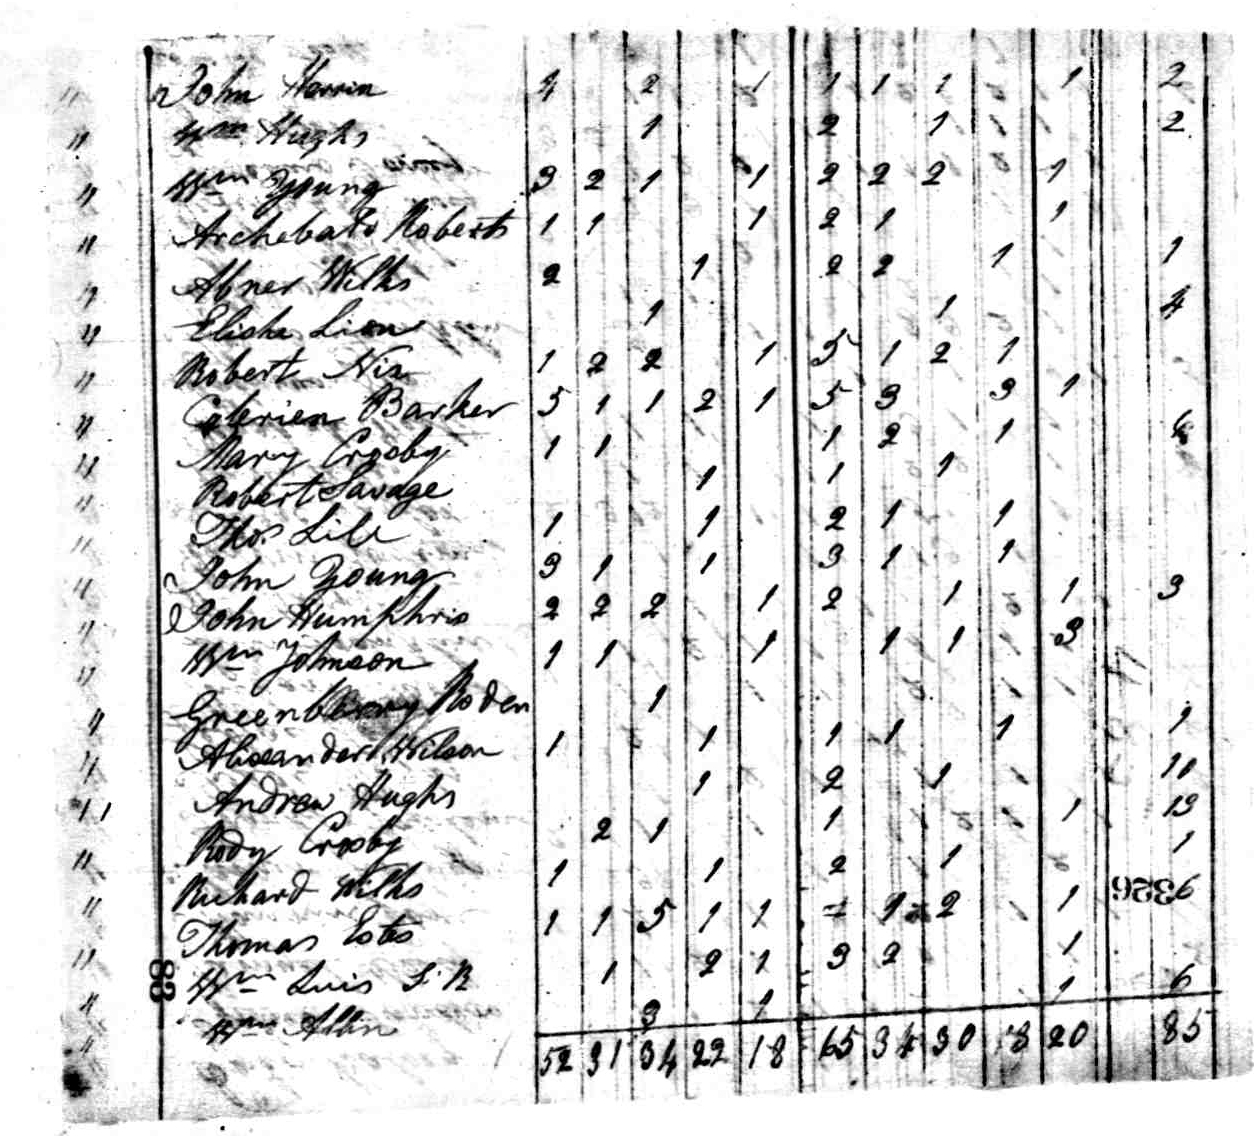 John Herrin 4 2 1 1 1 1 1 2
Wm Hughs 1 2 1 2
Wm Young 3 2 1 1 2 2 2 1
Archebald Roberts 1 1 1 2 1 1
Abner Wilks 2 1 2 2 1 1
Elisha Lion 1 1 4
Robert Nix 1 2 2 1 5 1 2 1
Barker 5 1 1 2 1 5 3 3 1
Mary Crosby 1 1 1 2 1 6
Robert Savage 1 1 1
Thos Lile 1 1 2 1 1
John Young 3 1 1 3 1 1
John Humphris 2 2 2 1 2 1 1 3
Wm Johnson 1 1 1 1 1 3
Greenberry Roden 1 1
Alexander Wilson 1 1 1 1 1 1
Andrew Hughs 1 2 1 10
Rody Crosby 2 1 1 1 13
Richard Wilks 1 1 2 1 1
Thomas Estes 1 1 5 1 1 2 1 6
Wm Luis S. R 1 2 1 3 2 1
Wm Albin 3 1 1 6
52 31 34 22 18 65 34 30 18 20 85
83
326